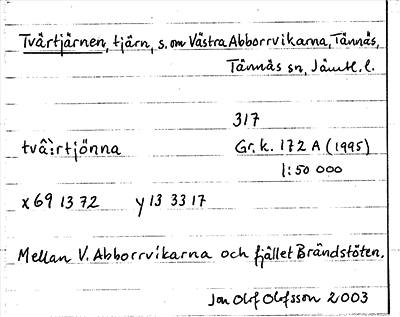 Tvärtjärnen, tjärn, s. om Västra Abborrvikarna, Tännäs,
Tännäs sn, Jämtl. l.
317
tvâ`:rtjönna Gr. k. 172 A (1995)
1:50 000
x 69 13 72 y 13 33 17
Mellan V. Abborrvikarna och fjället Brändstöten.
Jon Olof Olofsson 2003